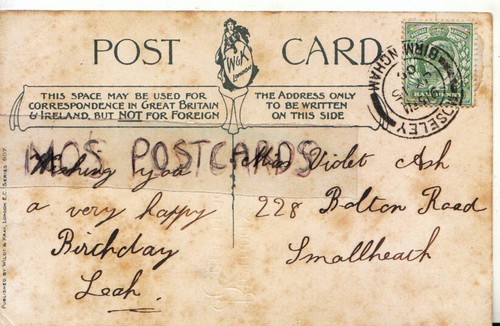 POST CARD
W&K
LONDON
THIS SPACE MAY BE USED FOR
CORRESPONDENCE IN GREAT BRITAIN
& IRELAND, BUT NOT FOR FOREIGN
THE ADDRESS ONLY
TO BE WRITTEN
ON THIS SIDE
MOS POSTCARDS
Wishing you
a very happy
Birthday
Leah.
Miss Violet Ash
228 Bolton Road
Smallheath
PUBLISHED BY WILDT & KRAY, LONDON E.C. SERIES 807
MOSELEY
BIRMINGHAM
HALFPENNY